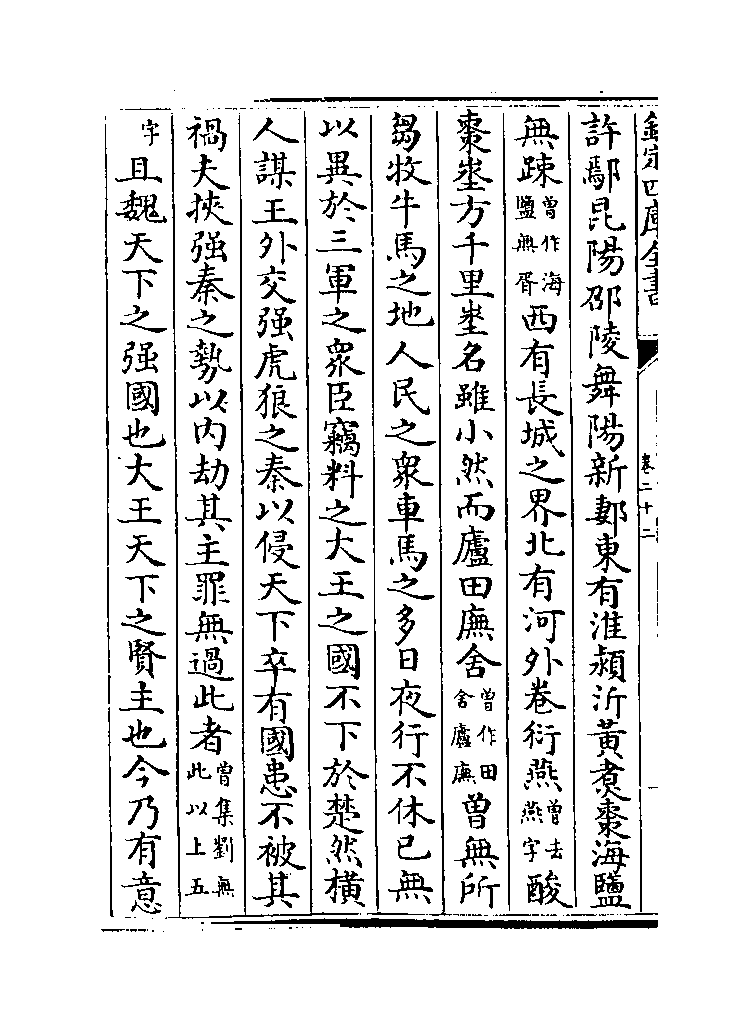 欽定四庫全書
卷二十二
許鄢昆陽邵陵舞陽新郪東有淮潁沂黃煑棗海鹽
無疎曾作海鹽無胥西有長城之界北有河外卷衍燕曾去燕字酸
棗埊方千里埊名雖小然而廬田廡舍曾作田舍廬廡曾無所
芻牧牛馬之地人民之衆車馬之多日夜行不休已無
以異於三軍之衆臣竊料之大王之國不下於楚然橫
人謀王外交强虎狼之秦以侵天下卒有國患不被其
禍夫挾强秦之勢以内劫其主罪無過此者曾集劉無此以上五
字且魏天下之强國也大王天下之賢主也今乃有意